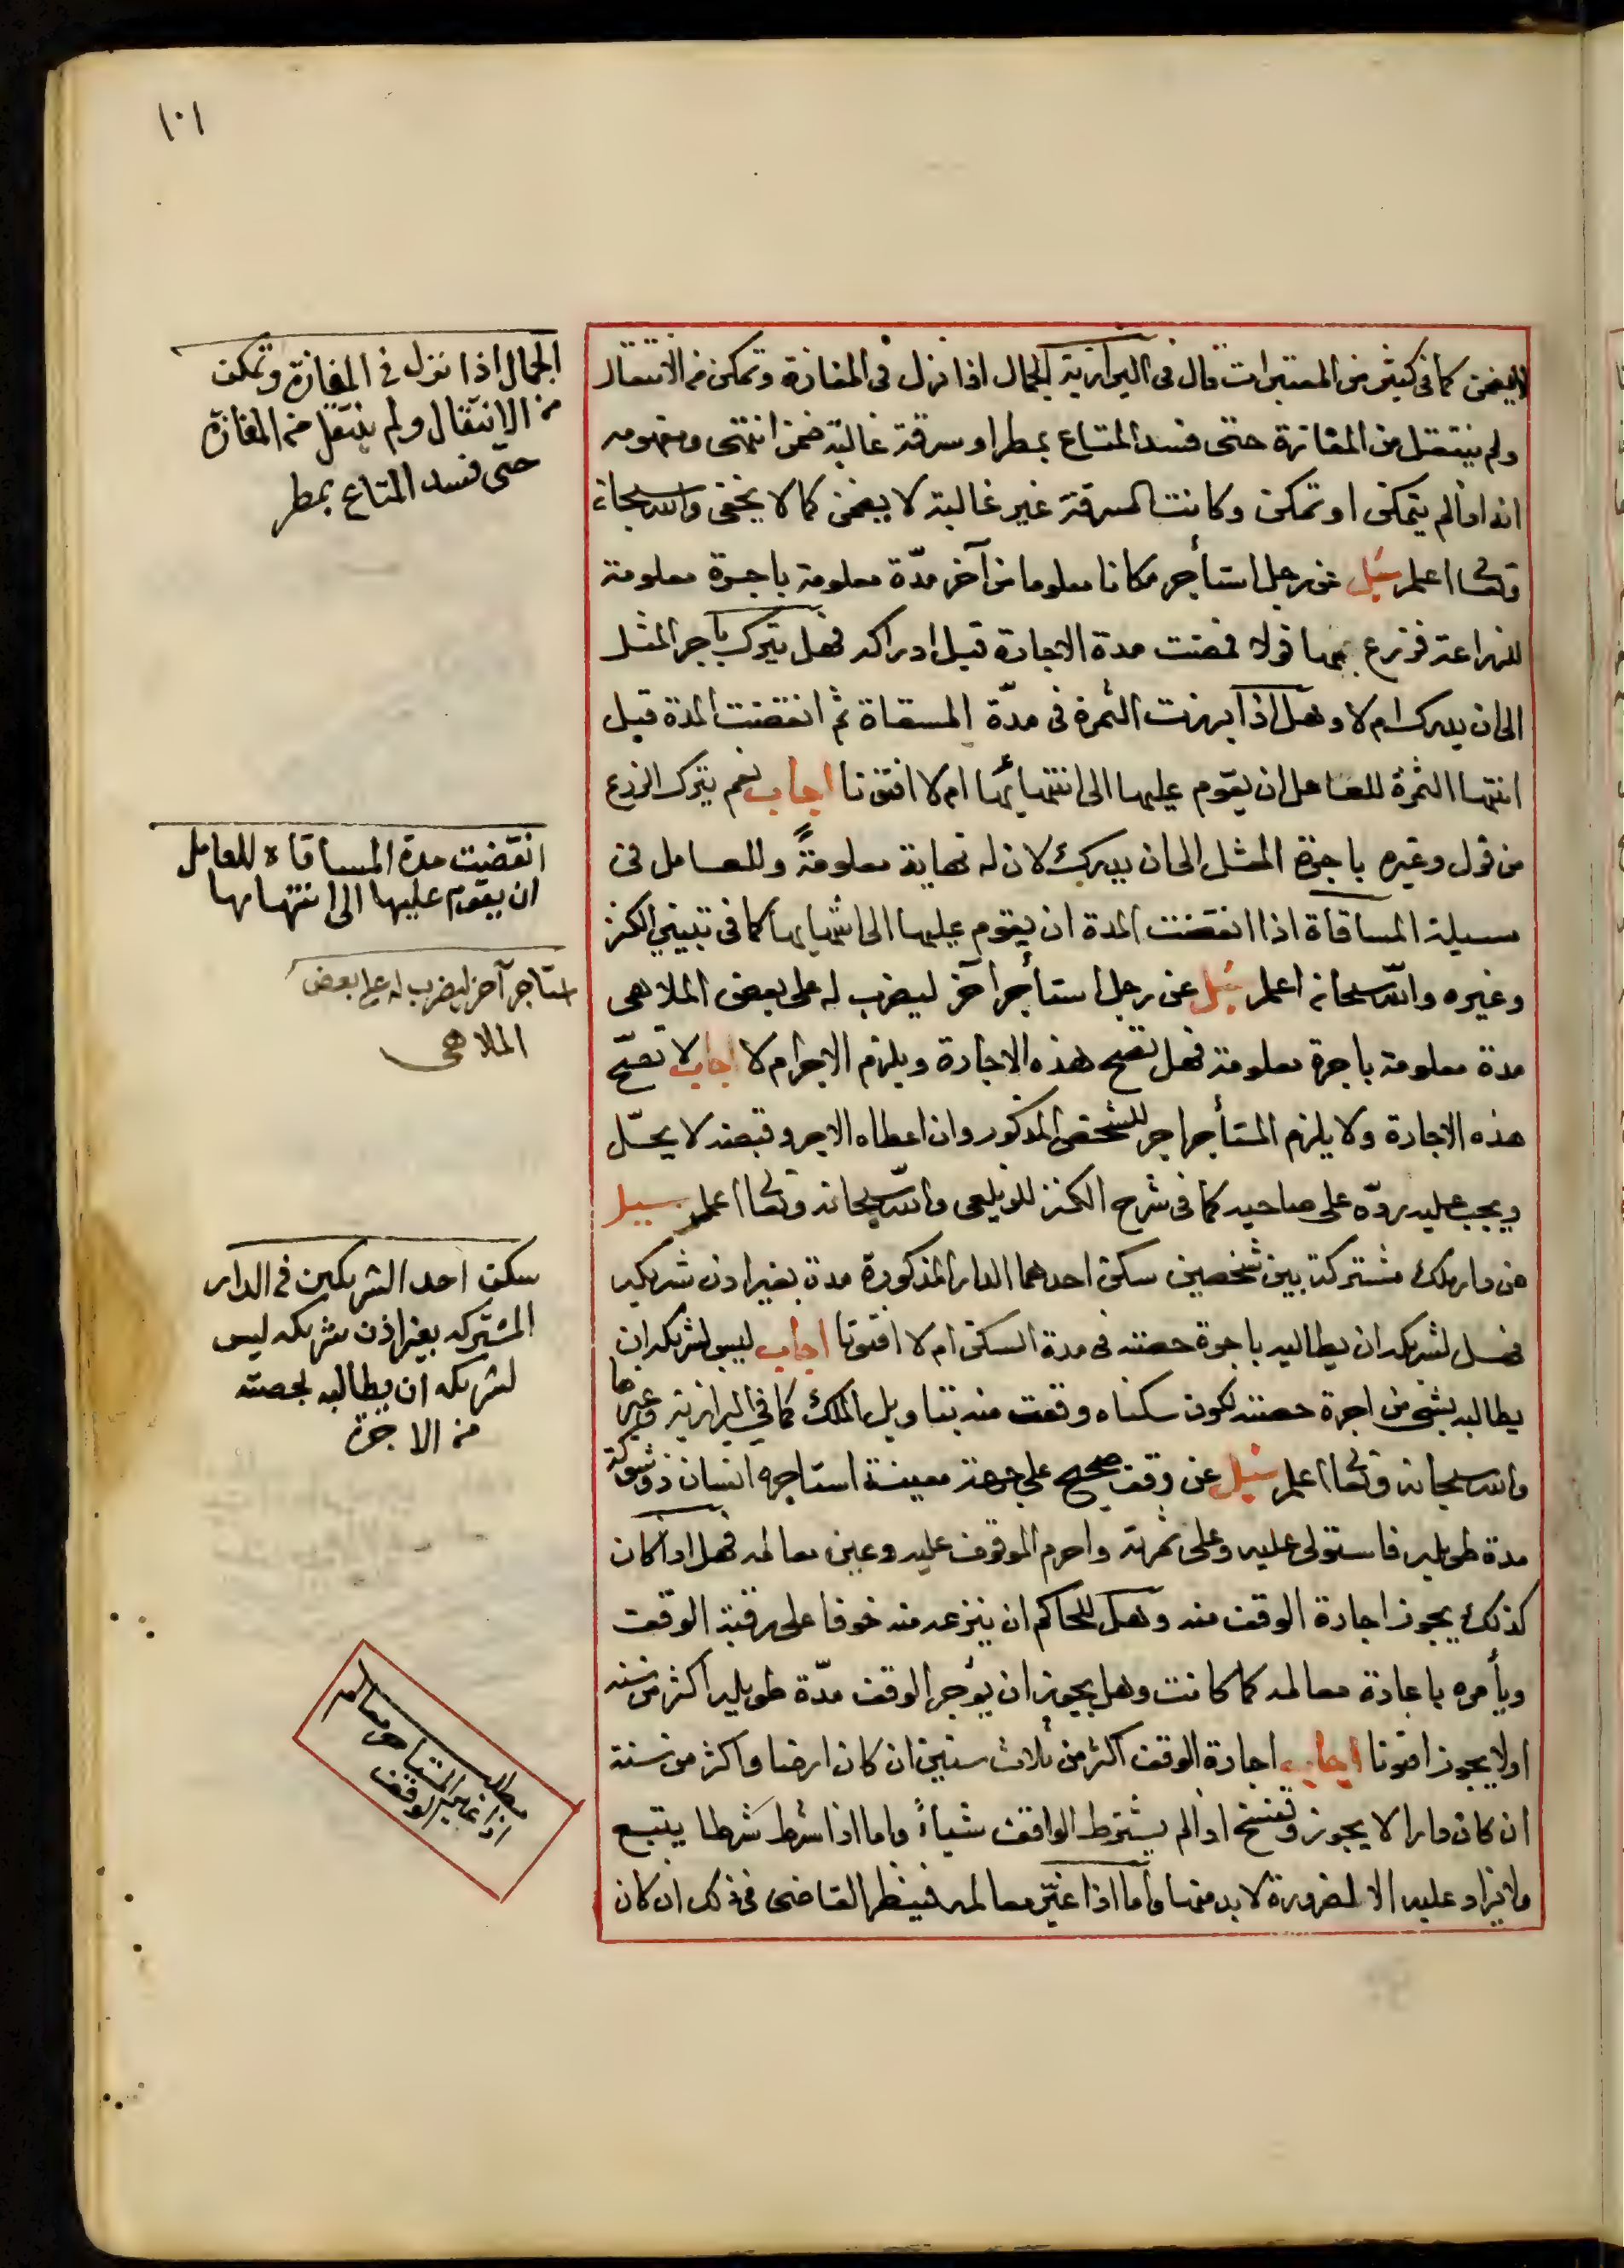 ١٠١
لا يضمن كما فى كثير من المعتبرات قال فى البزازية الجمال اذا نزل فى المفازة وتمكن من الانتقال
ولم ينتقل من المفازة حتى فسد المتاع بمطر او سرقة غالبة ضمن انتهى ومفهومه
انه اذا لم يتمكن او تمكن وكانت السرقة غير غالبة لا يضمن كما لا يخفى والله سبحانه
وتعالى اعلم سئل عن رجل استأجر مكانا معلوما من آخر مدّة معلومة باجرة معلومة
للزراعة فزرع بها فولا فمضت مدة الاجارة قبل ادراكه فهل يترك باجر المثل
الى ان يدرك ام لا وهل اذا برزت الثمرة فى مدّة المسقاة ثم انقضت المدة قبل
انتها الثمرة للعامل ان يقوم عليها الى انتهائها ام لا افتونا اجاب نعم يترك الزرع
من فول وغيره باجرة المثل الى ان يدرك لان له نهاية معلومةً وللعامل فى
مسيلة المساقاة اذا انقضت المدة ان يقوم عليها الى انتهايها كما فى تبيين الكنز
وغيره والله سبحانه اعلم سئل عن رجل استأجر آخر ليضرب له على بعض الملاهى
مدة معلومة باجرة معلومة فهل تصح هذه الاجارة ويلزم الاجر ام لا اجاب لا تصحّ
هذه الاجارة ولا يلزم المستأجر اجر للشخص المذكور وان اعطاه الاجر وقبضه لا يحلّ
ويجب عليه ردّه على صاحبه كما فى شرح الكنز للزيلعى والله سبحانه وتعالى اعلم سيل
عن دار ملك مشتركة بين شخصين سكن احدهما الدار المذكورة مدة بغير اذن شريكه
فهل لشريكه ان يطالبه باجرة حصته فى مدة السكن ام لا افتونا اجاب ليس لشريكه ان
يطالبه بشى من اجرة حصته لكون سكناه وقعت منه بتاويل الملك كما في البزازية وغيرها
والله سبحانه وتعالى اعلم سئل عن وقف صحيح على جهة معينة استاجره انسان ذو شوكة
مدة طويله فاستولى عليه وعلى ثمرته واحرم الموقوف عليه وغير معالمه فهل اذا كان
كذلك يجوز اجارة الوقف منه وهل للحاكم ان ينزعه منه خوفا على رقبة الوقف
ويأمره باعادة معالمه كما كانت وهل يجوز ان يؤجر الوقف مدّة طويله اكثر من سنه
اولا يجوز افتونا اجاب اجارة الوقف اكثر من ثلاث سنين ان كان ارضا واكثر من سنة
ان كان دارا لا يجوز وتفسخ اذا لم يشترط الواقف شياءً واما اذا شرط شرطا يتبع
ولا يزاد عليه الا لضرورة لا بد منها واما اذا غيّر معالمه فينظر القاضى فى ذلك ان كان
الجمال اذا نزل فى المفازة وتمكن
من الانتقال ولم ينتقل من المفازة
حتى فسد المتاع بمطر
انقضيت مدة المساقاه للعامل
ان يقوم عليها الى انتهائها
استاجر آخر ليضرب له على بعض
الملاهى
سكن احد الشريكين فى الدار
المشتركه بغير اذن شريكه ليس
لشريكه ان يطالبه بحصته
من الاجرة
مطلب
اذا غير المستاجر معالم
الوقف